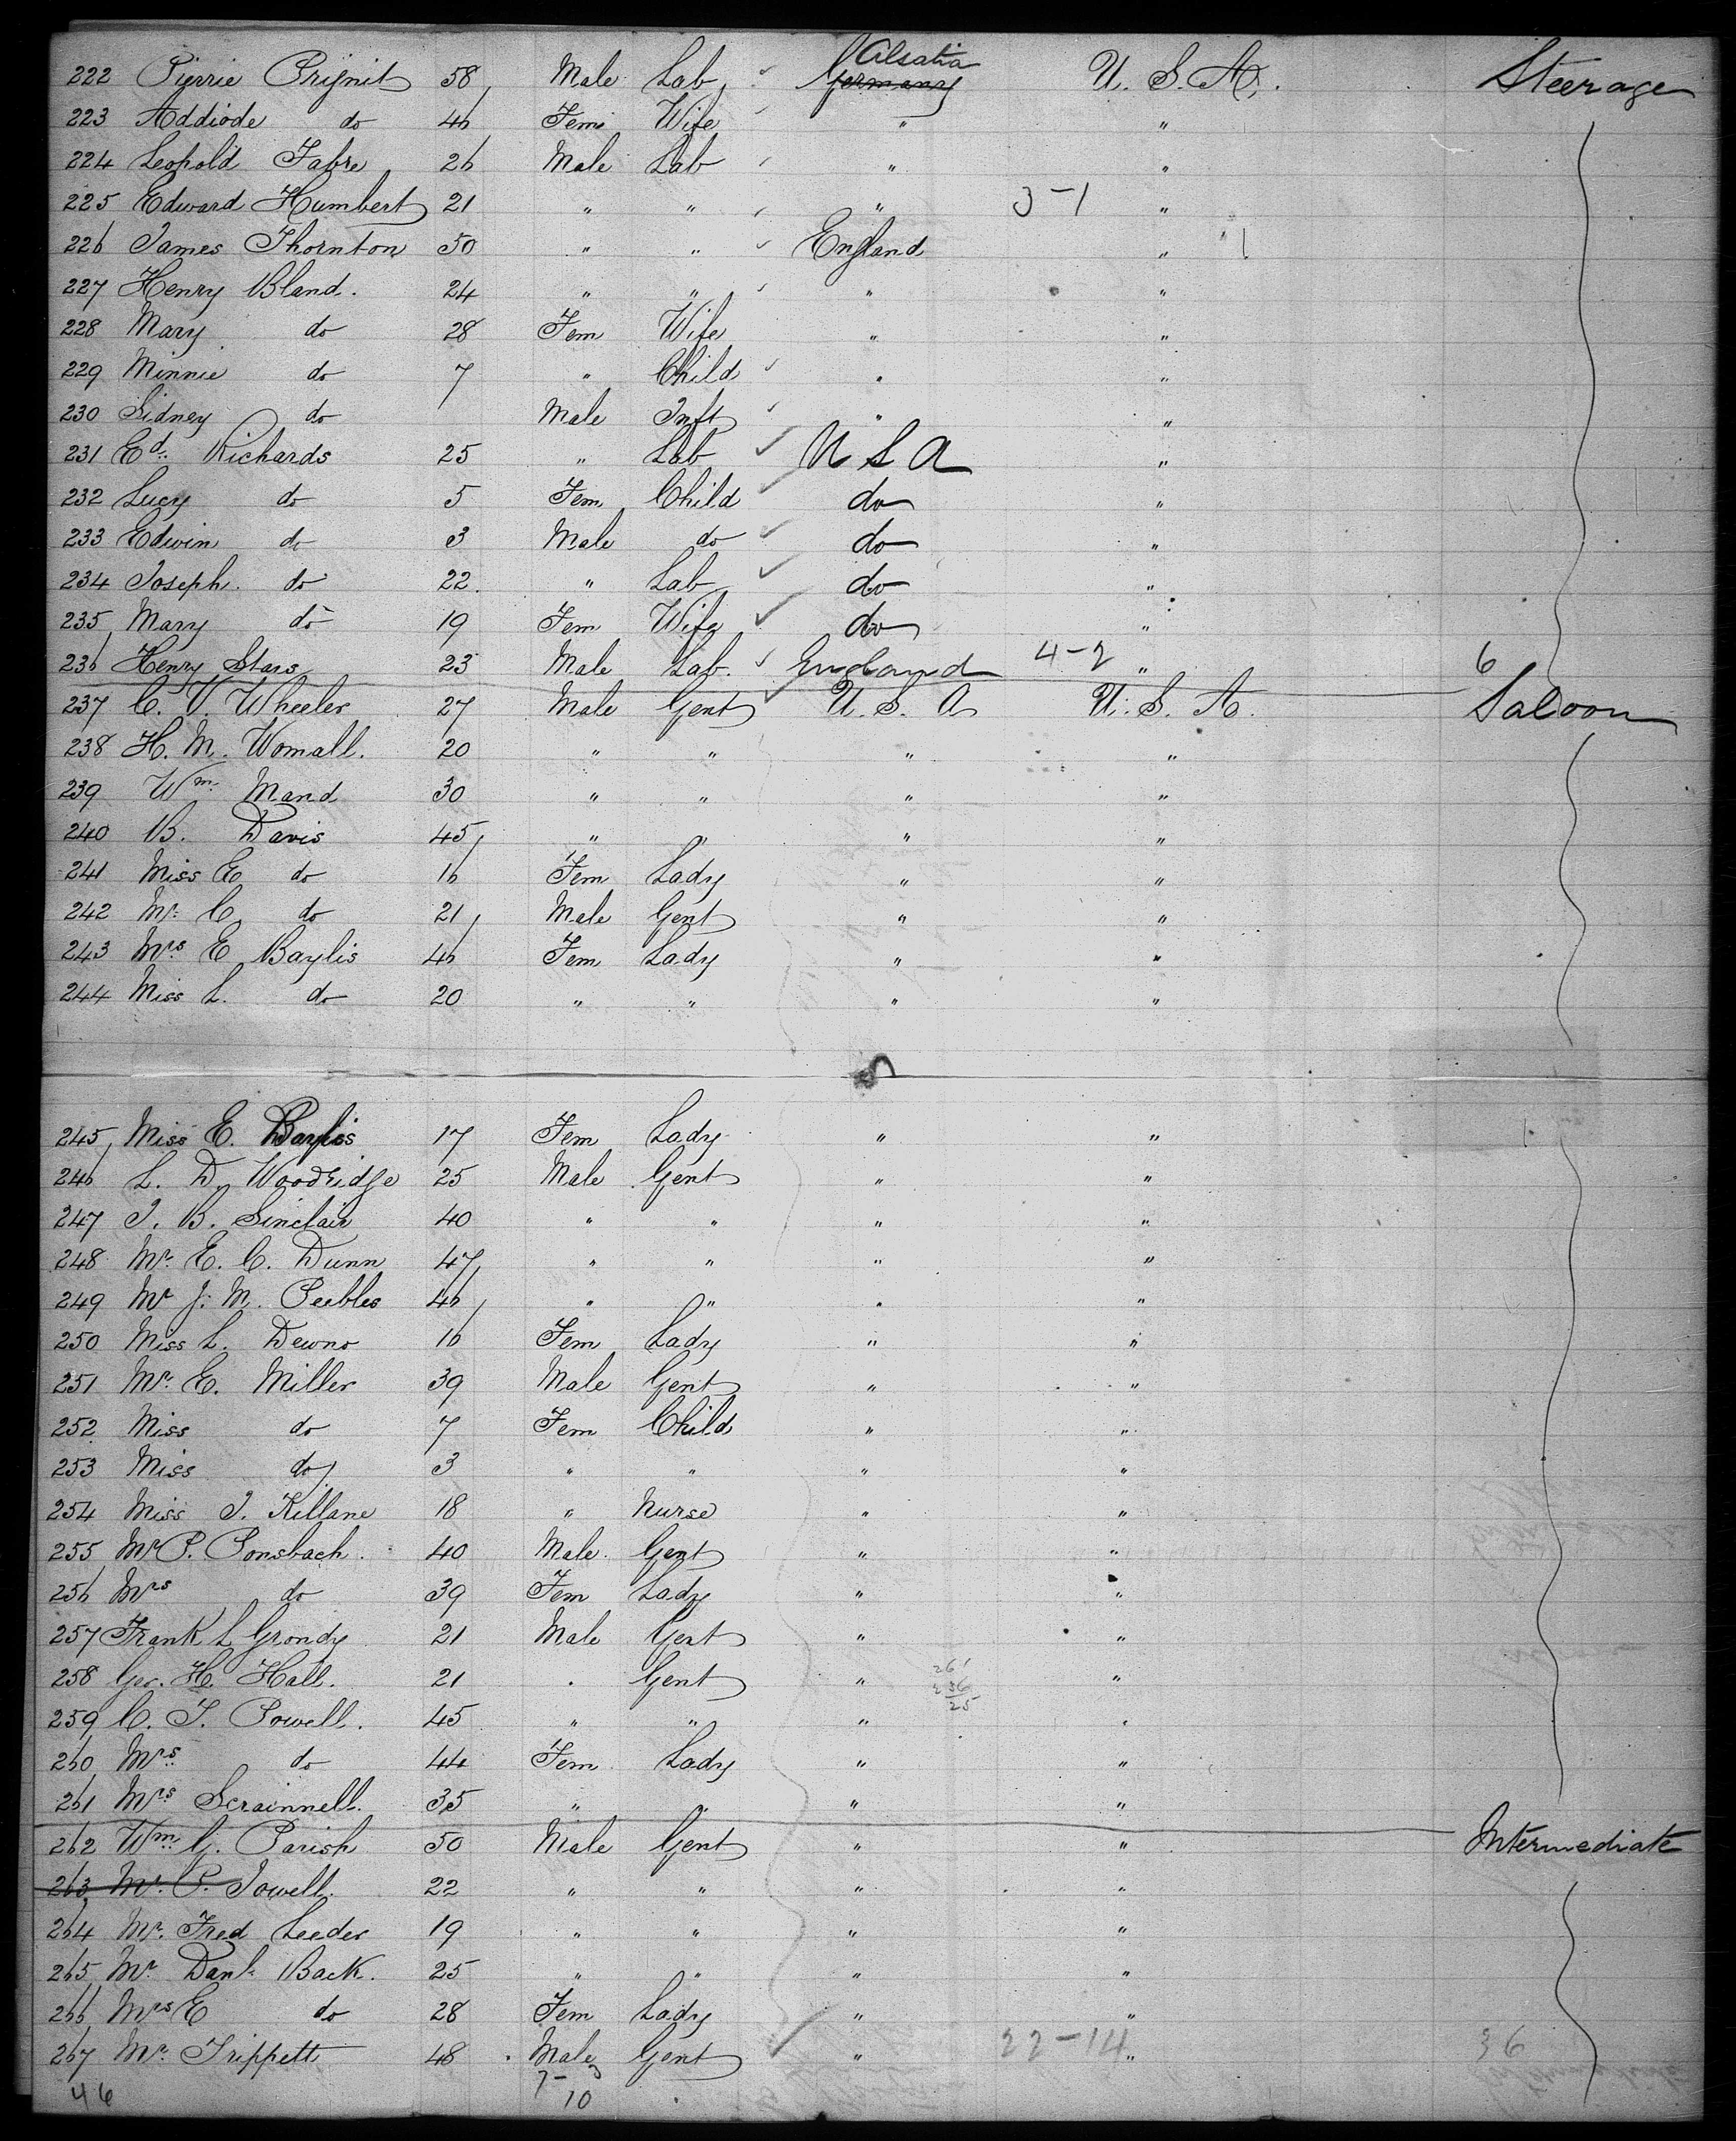 222 Pierrie Prignit 58 Male Lab Alsatia Germany U. S. A. Steerage
223 Addiode do 46 Fem Wife " "
224 Leopold Fabre 26 Male Lab " "
225 Edward Humbert 21 " " " 3-1 "
226 James Thornton 50 " " England " 1
227 Henry Bland. 24 " " " "
228 Mary do 28 Fem Wife " "
229 Minnie do 7 " Child " "
230 Sidney do Male Inft " "
231 Ed. Richards 25 " Lab U S A "
232 Lucy do 5 Fem Child do "
233 Edwin do 3 Male do do "
234 Joseph. do 22. " Lab do "
235 Mary do 19 Fem Wife do "
236 Henry Stars 23 Male Lab. England 4-2 " 6
237 C. V. Wheeler 27 Male Gent U. S. A U. S. A. Saloon
238 H. M. Womall. 20 " " " "
239 Wm. Mand 30 " " " "
240 B. Davis 45 " " " "
241 Miss E do 16 Fem Lady " "
242 Mr. C. do 21 Male Gent " "
243 Mrs E Baylis 46 Fem Lady " "
244 Miss L. do 20 " " " "
245 Miss E. Baylis 17 Fem Lady " "
246 L. D. Woodridge 25 Male Gent " "
247 J. B. Sinclair 40 " " " "
248 Mr. E. C. Dunn 47 " " " "
249 Mr J. M. Peebles 46 " " " "
250 Miss L. Dewno 16 Fem Lady " "
251 Mr. E. Miller 39 Male Gent " "
252 Miss do 7 Fem Child " "
253 Miss do 3 " " " "
254 Miss J. Killane 18 " Nurse " "
255 Mr P. Ponsbach. 40 Male. Gent " "
256 Mrs do 39 Fem Lady " "
257 Frank L Grondy 21 Male Gent " "
258 Geo. H. Hall. 21 " Gent " 261 236 25 "
259 C. T. Powell. 45 " " " "
260 Mrs. do 44 Fem Lady " "
261 Mrs Scrainnell. 35 " " " "
262 Wm. G. Parish 50 Male Gent " " Intermediate
263 Mr. P. Jowell. 22 " " " "
264 Mr. Fred Leeder 19 " " " "
265 Mr. Danl. Back. 25 " " " "
266 Mrs E do 28 Fem Lady " "
267 Mr. Trippett 48 Male Gent " 22-14 " 36
46 7-3
10